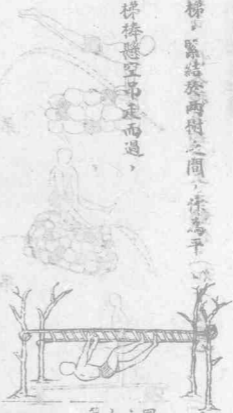 梯，緊結於兩樹之間，作為平
梯棒懸空吊走而過，